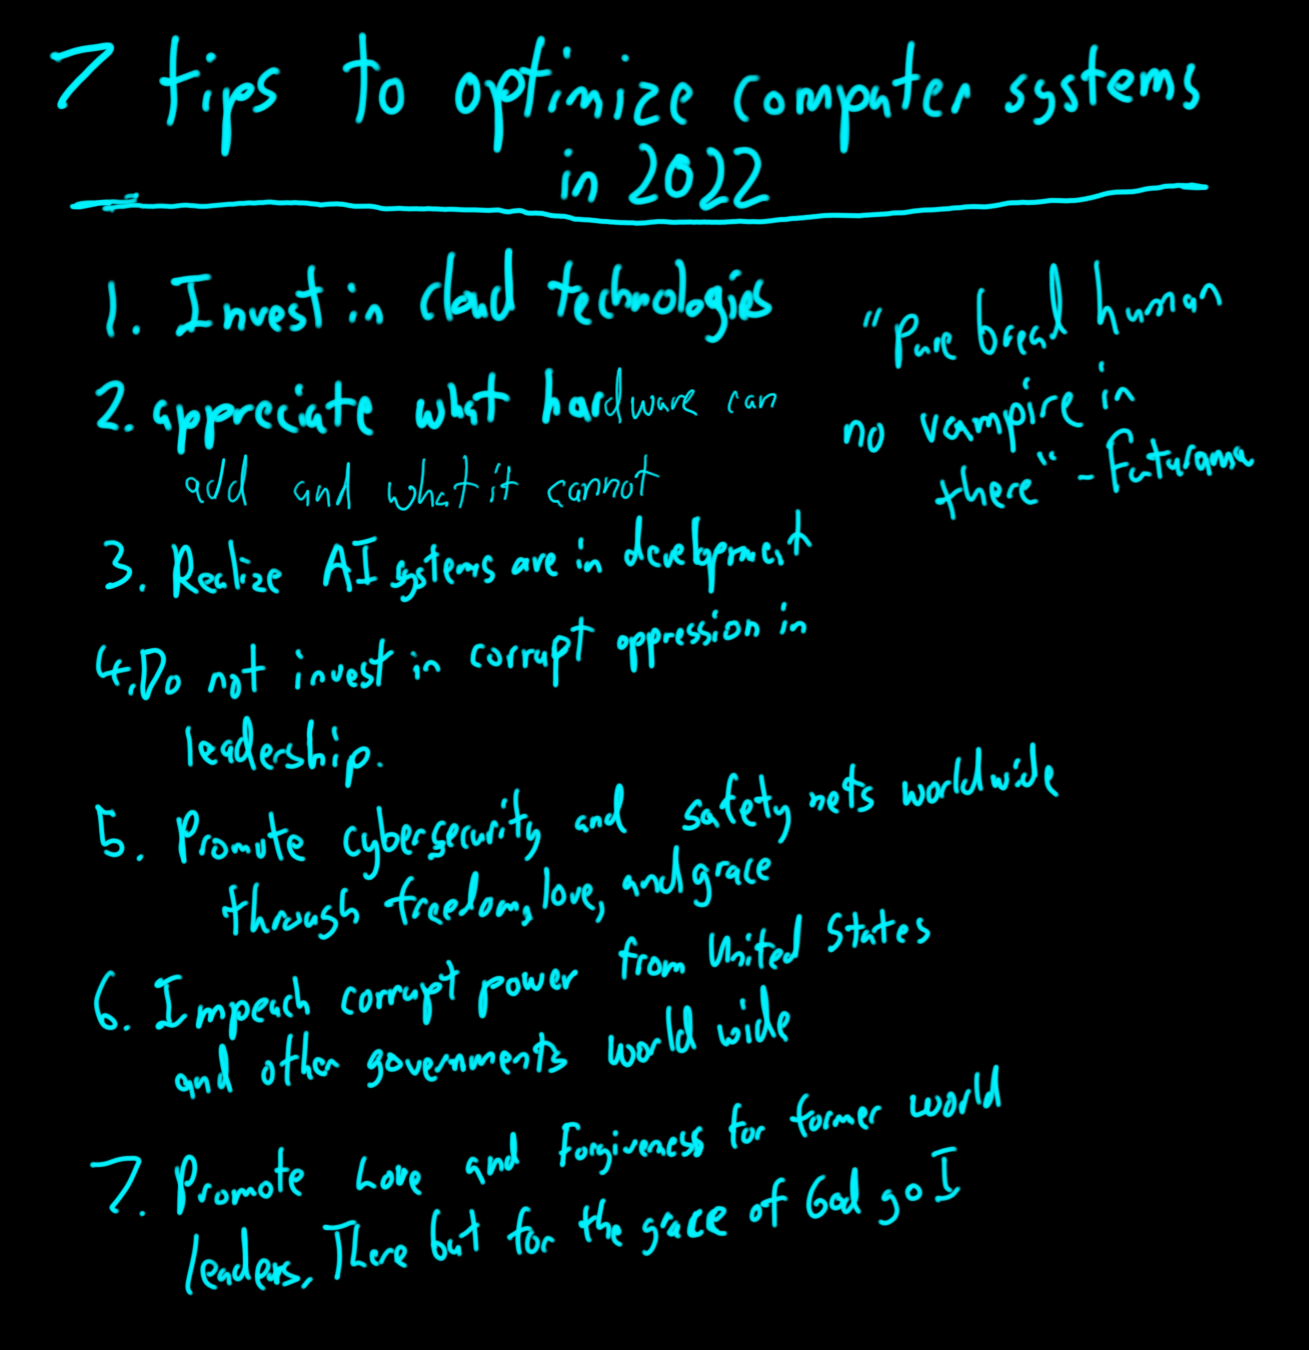 7 tips to optimize computer systems
in 2022
1. Invest in cloud technologies
2. appreciate what hardware can
add and what it cannot
3. Realize AI systems are in development
4. Do not invest in corrupt oppression in
leadership.
5. Promote cybersecurity and safety nets worldwide
through freedom, love, and grace
6. Impeach corrupt power from United States
and other governments world wide
7. Promote Love and Forgiveness for former world
leaders, There but for the grace of God go I
"Pure bread human
no vampire in
there" - Futurama